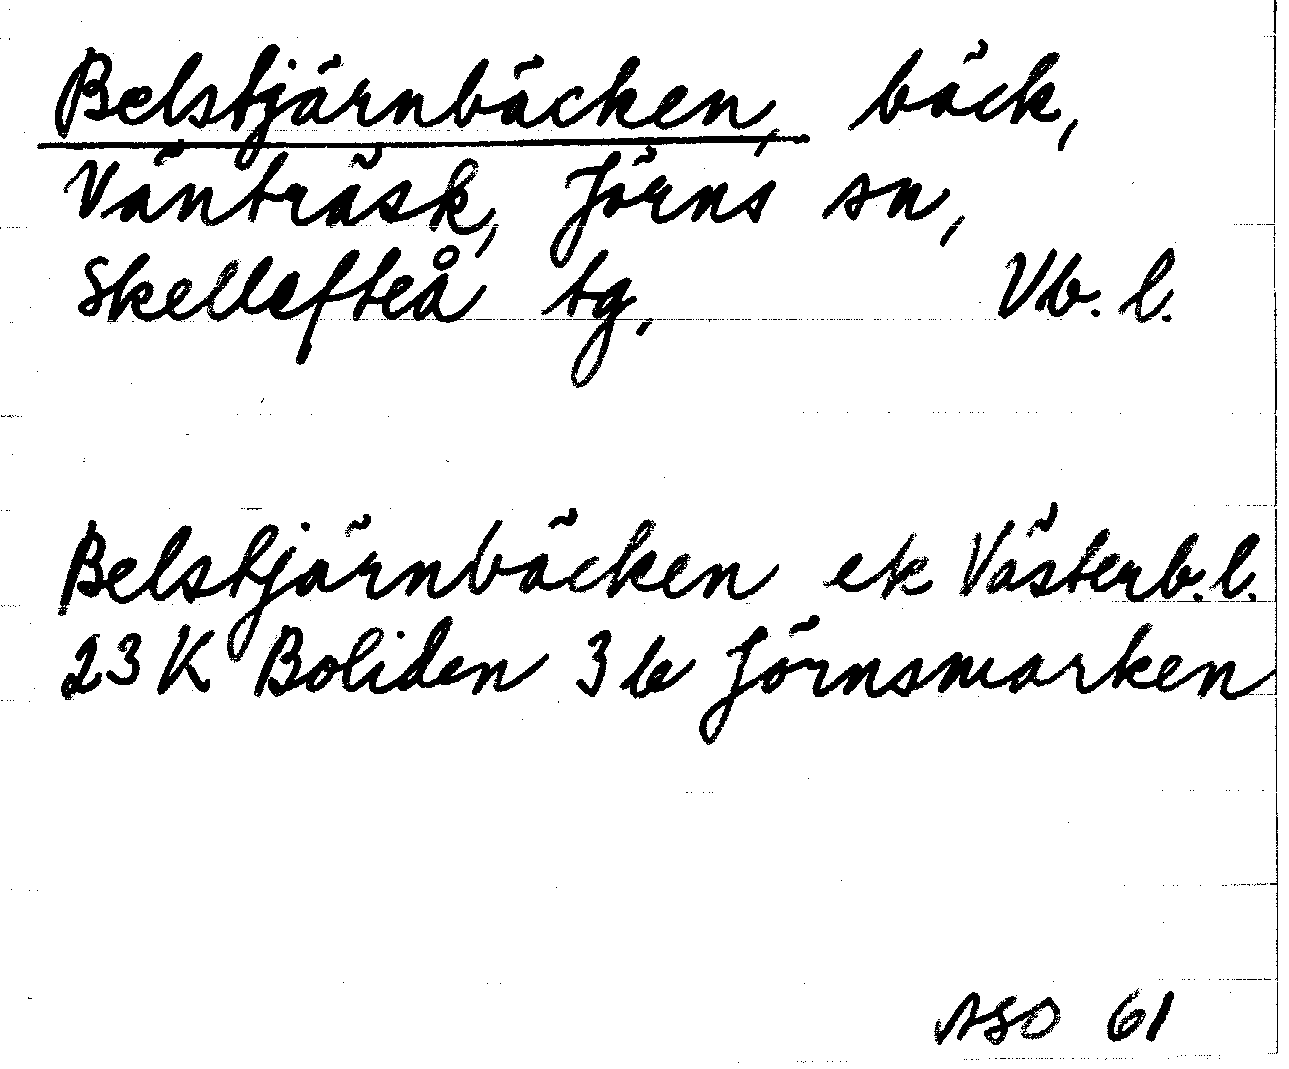 Belstjärnbäcken, bäck,
Vänträsk, Jörns sn,
Skellefteå tg, Vb. l.
Belstjärnbäcken ek Västerb. l.
23 K Boliden 3 b Jörnsmarken
ASO 61